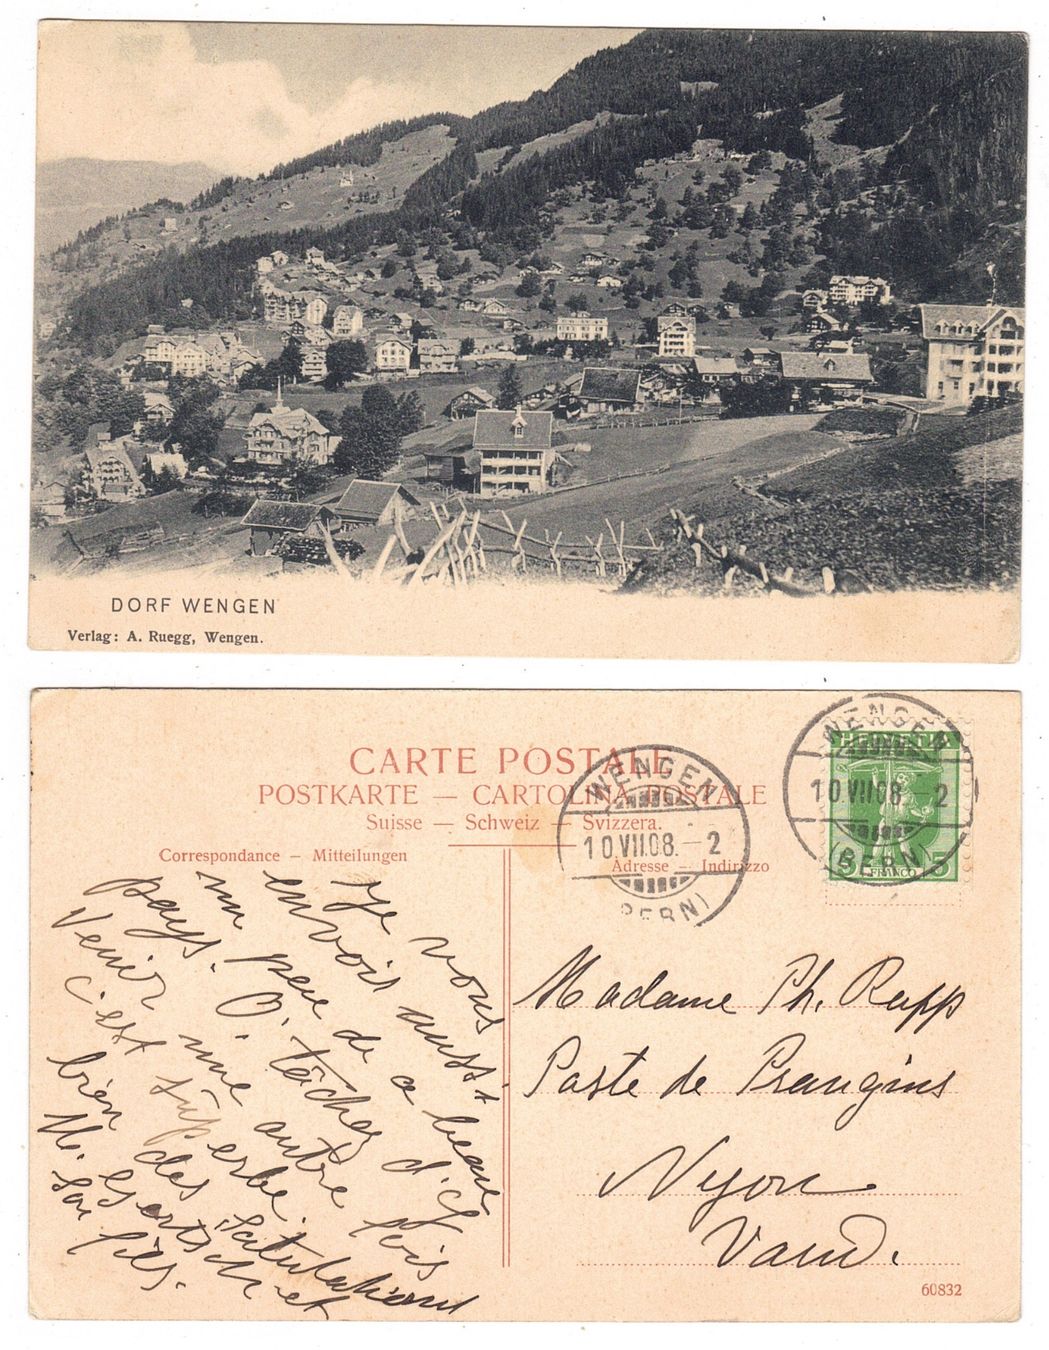 DORF WENGEN
Verlag: A. Ruegg, Wengen.
CARTE POSTALE
POSTKARTE — CARTOLINA POSTALE
Suisse — Schweiz — Svizzera.
Correspondance – Mitteilungen
Adresse – Indirizzo
WENGEN
10.VII.08.–2
(BERN)
WENGEN
10.VII.08–2
(BERN)
HELVETIA
5 FRANCO 5
Je vous
envois aussi
un peu de ce beau
pays. O. tâchez d'y
Venir une autre fois
c'est superbe.
bien des Salutations
M. et
son fils.
Madame Ph. Rupp
Poste de Prangins
Nyon
Vaud.
60832